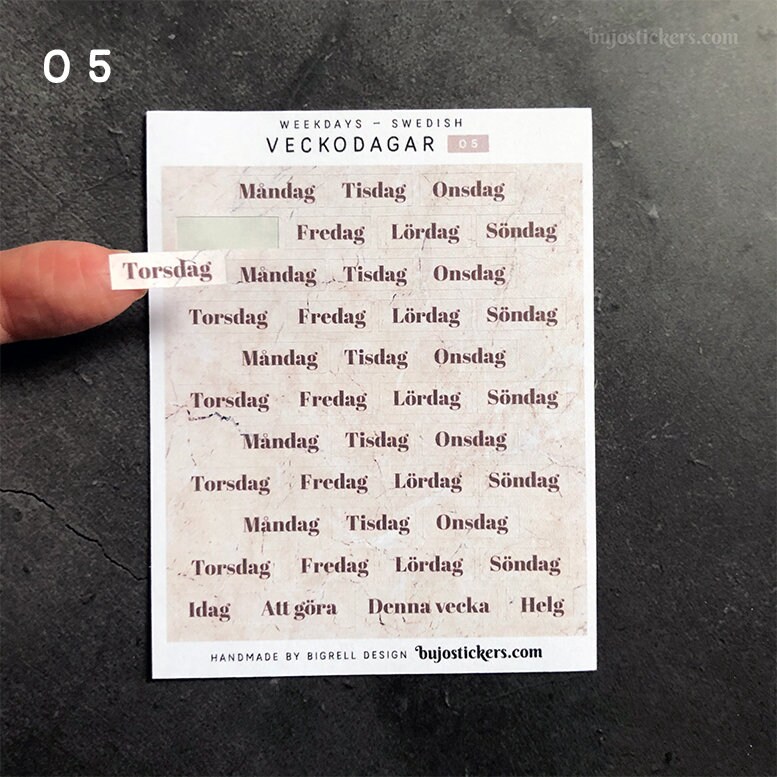 05
bujostickers.com
WEEKDAYS – SWEDISH
VECKODAGAR 05
Måndag Tisdag Onsdag
Fredag Lördag Söndag
Torsdag Måndag Tisdag Onsdag
Torsdag Fredag Lördag Söndag
Måndag Tisdag Onsdag
Torsdag Fredag Lördag Söndag
Måndag Tisdag Onsdag
Torsdag Fredag Lördag Söndag
Måndag Tisdag Onsdag
Torsdag Fredag Lördag Söndag
Idag Att göra Denna vecka Helg
HANDMADE BY BIGRELL DESIGN bujostickers.com